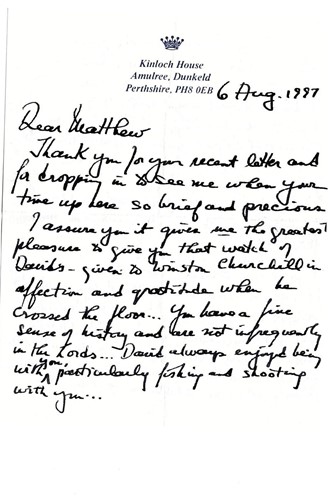 Kinloch House
Amulree, Dunkeld
Perthshire, PH8 0EB
6 Aug. 1997
Dear Matthew
Thank you for your recent letter and
for dropping in to see me when your
time up here so brief and precious
I assure you it gives me the greatest
pleasure to give you that watch of
Davids - given to Winston Churchill in
affection and gratitude when he
crossed the floor... You have a fine
sense of history and are not infrequently
in the Lords... David always enjoyed being
with you, particularly fishing and shooting
with you...